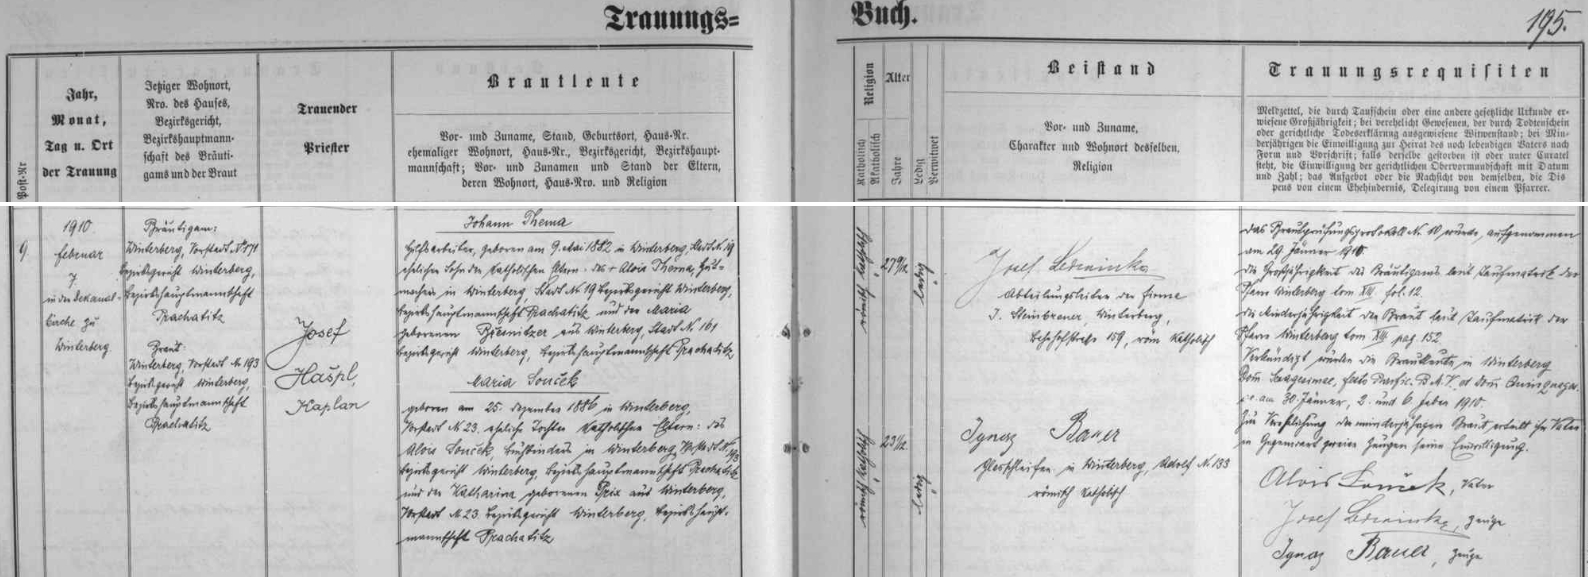 Trauungs=
Buch.
195.
Post-Nr
Jahr,
Monat,
Tag u. Ort
der Trauung
Jetziger Wohnort,
Nro. des Hauses,
Bezirksgericht,
Bezirkshauptmann-
schaft des Bräuti-
gams und der Braut
Trauender
Priester
Brautleute
Vor- und Zuname, Stand, Geburtsort, Haus-Nr.
ehemaliger Wohnort, Haus-Nr., Bezirksgericht, Bezirkshaupt-
mannschaft; Vor- und Zunamen und Stand der Eltern,
deren Wohnort, Haus-Nro. und Religion
Religion
Katholisch
Akatholisch
Alter
Jahre
Ledig
Verwitwet
Beistand
Vor- und Zuname,
Charakter und Wohnort desselben,
Religion
Trauungsrequisiten
Meldzettel, die durch Taufschein oder eine andere gesetzliche Urkunde er-
wiesene Großjährigkeit; bei verehelicht Gewesenen, der durch Todtenschein
oder gerichtliche Todeserklärung ausgewiesene Witwenstand; bei Min-
derjährigen die Einwilligung zur Heirat des noch lebendigen Vaters nach
Form und Vorschrift; falls derselbe gestorben ist oder unter Curatel
steht, die Einwilligung der gerichtlichen Obervormundschaft mit Datum
und Zahl; das Aufgebot oder die Nachsicht von demselben, die Dis
pens von einem Ehehindernis, Delegirung von einem Pfarrer.
9.
1910
Februar
7
in der Dekanal-
kirche zu
Winterberg
Bräutigam:
Winterberg, Vorstadt N
Bezirksgericht Winterberg,
Bezirkshauptmannschaft
Prachatitz
Braut:
Winterberg, Vorstadt N 193
Bezirksgericht Winterberg,
Bezirkshauptmannschaft
Prachatitz
Josef
Hašpl,
Kaplan
Johann Thema
Hilfsarbeiter, geboren am 9. Mai 1882 in Winterberg, Stadt N. 19
ehelicher Sohn der katholischen Eltern: des + Alois Thema, Hut-
machers in Winterberg, Stadt N 19 Bezirksgericht Winterberg,
Bezirkshauptmannschaft Prachatitz und der Maria
geborenen aus Winterberg, Stadt N. 161
Bezirksgericht Winterberg, Bezirkshauptmannschaft Prachatitz
Maria Souček
geboren am 25. Dezember 1886 in Winterberg,
Vorstadt N 23, eheliche Tochter katholischer Eltern: des
Alois Souček, Buchbinders in Winterberg Vorstadt N. 193
Bezirksgericht Winterberg, Bezirkshauptmannschaft Prachatitz
und der Katharina geborenen Prix aus Winterberg,
Vorstadt N 23 Bezirksgericht Winterberg, Bezirkshaupt-
mannschaft Prachatitz
römisch katholisch
ledig
römisch katholisch
ledig
Josef
Abteilungsleiter der Firma
J. Steinbrener, Winterberg,
Bahnhofstraße 159, röm. katholisch
Ignaz Bauer
Glasschleifer in Winterberg, Adolf N. 133
römisch katholisch
Das Brautprüfungsprotokoll N. 10 wurde, aufgenommen
am 29. Jänner 1910.
Die Großjährigkeit des Bräutigams laut Taufmatrik der
Pfarre Winterberg tom XIII. fol. 12.
Die Minderjährigkeit der Braut laut Taufmatrik der
Pfarre Winterberg tom XIII pag 152
Verkündigt wurden die Brautleute in Winterberg
Dom. Sexagesimae, festo Purific. B. M. V. et Dom. Quinquages.
i. e. am 30. Jänner, 2. und 6. Feber 1910.
Zur Verehelichung der minderjährigen Braut erteilt ihr Vater
in Gegenwart zweier Zeugen seine Einwilligung.
Alois Souček, Vater
Josef Zeuge
Ignaz Bauer, Zeuge